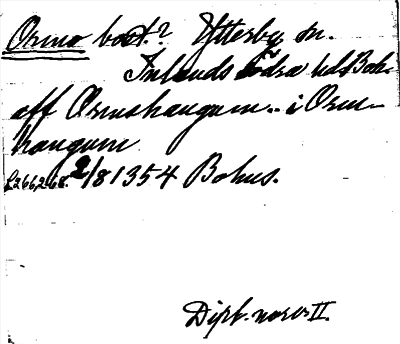 Ormo bort.? Ytterby sn.
Inlands Södra hd Boh.
aff Ormshaugum.. i Orm-
haugum
s.266,268. 2/8 1354 Bohus.
Dipl. norv II.